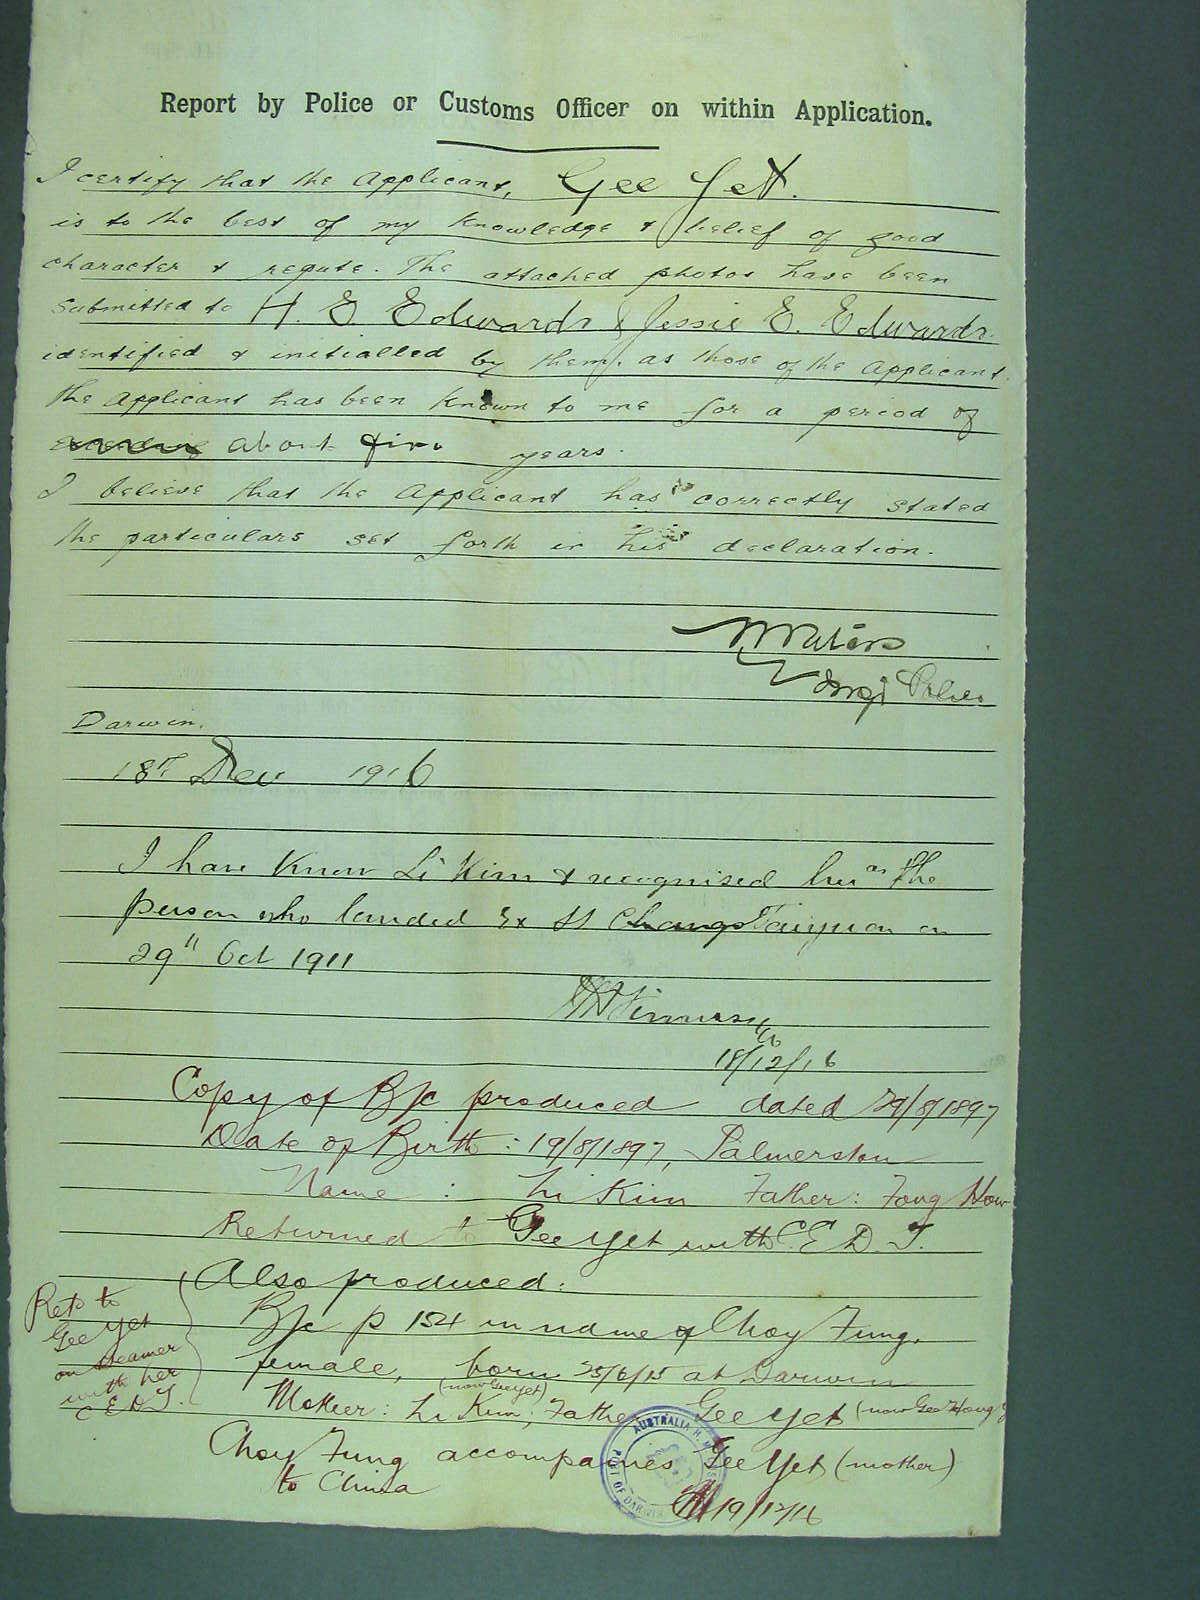 Report by Police or Customs Officer on within Application.
I certify that the Applicant, Gee Yet.
is to the best of my knowledge & belief of good
character & repute. The attached photos have been
submitted to H. E. Edwards & Jessie E. Edwards
identified & initialled by them, as those of the Applicant.
The Applicant has been known to me for a period of
about five years.
I believe that the Applicant has correctly stated
the particulars set forth in his declaration.
Waters
Police
Darwin.
18th Dec 1916
I have know Li Kim & recognised her as the
person who landed Ex SS Changs Taiyuan on
29" Oct 1911
18/12/16
Copy of B/c produced dated 29/8/1897
Date of Birth: 19/8/1897, Palmerston
Name : Li Kim Father: Fong How
Returned to Gee Yet with C.E.D.T.
Also produced:
B/c p 154 in name of Choy Fung,
female, born 25/6/15 at Darwin
(now Gee Yet)
Mother: Li Kim; Father Gee Yet (now Gee Hong
Retd to
Gee Yet
on steamer
with her
C.E.D.T.
Choy Fung accompanies Gee Yet (mother)
to China
19/12/16
AUSTRALIA H. M.
PORT OF DARWIN